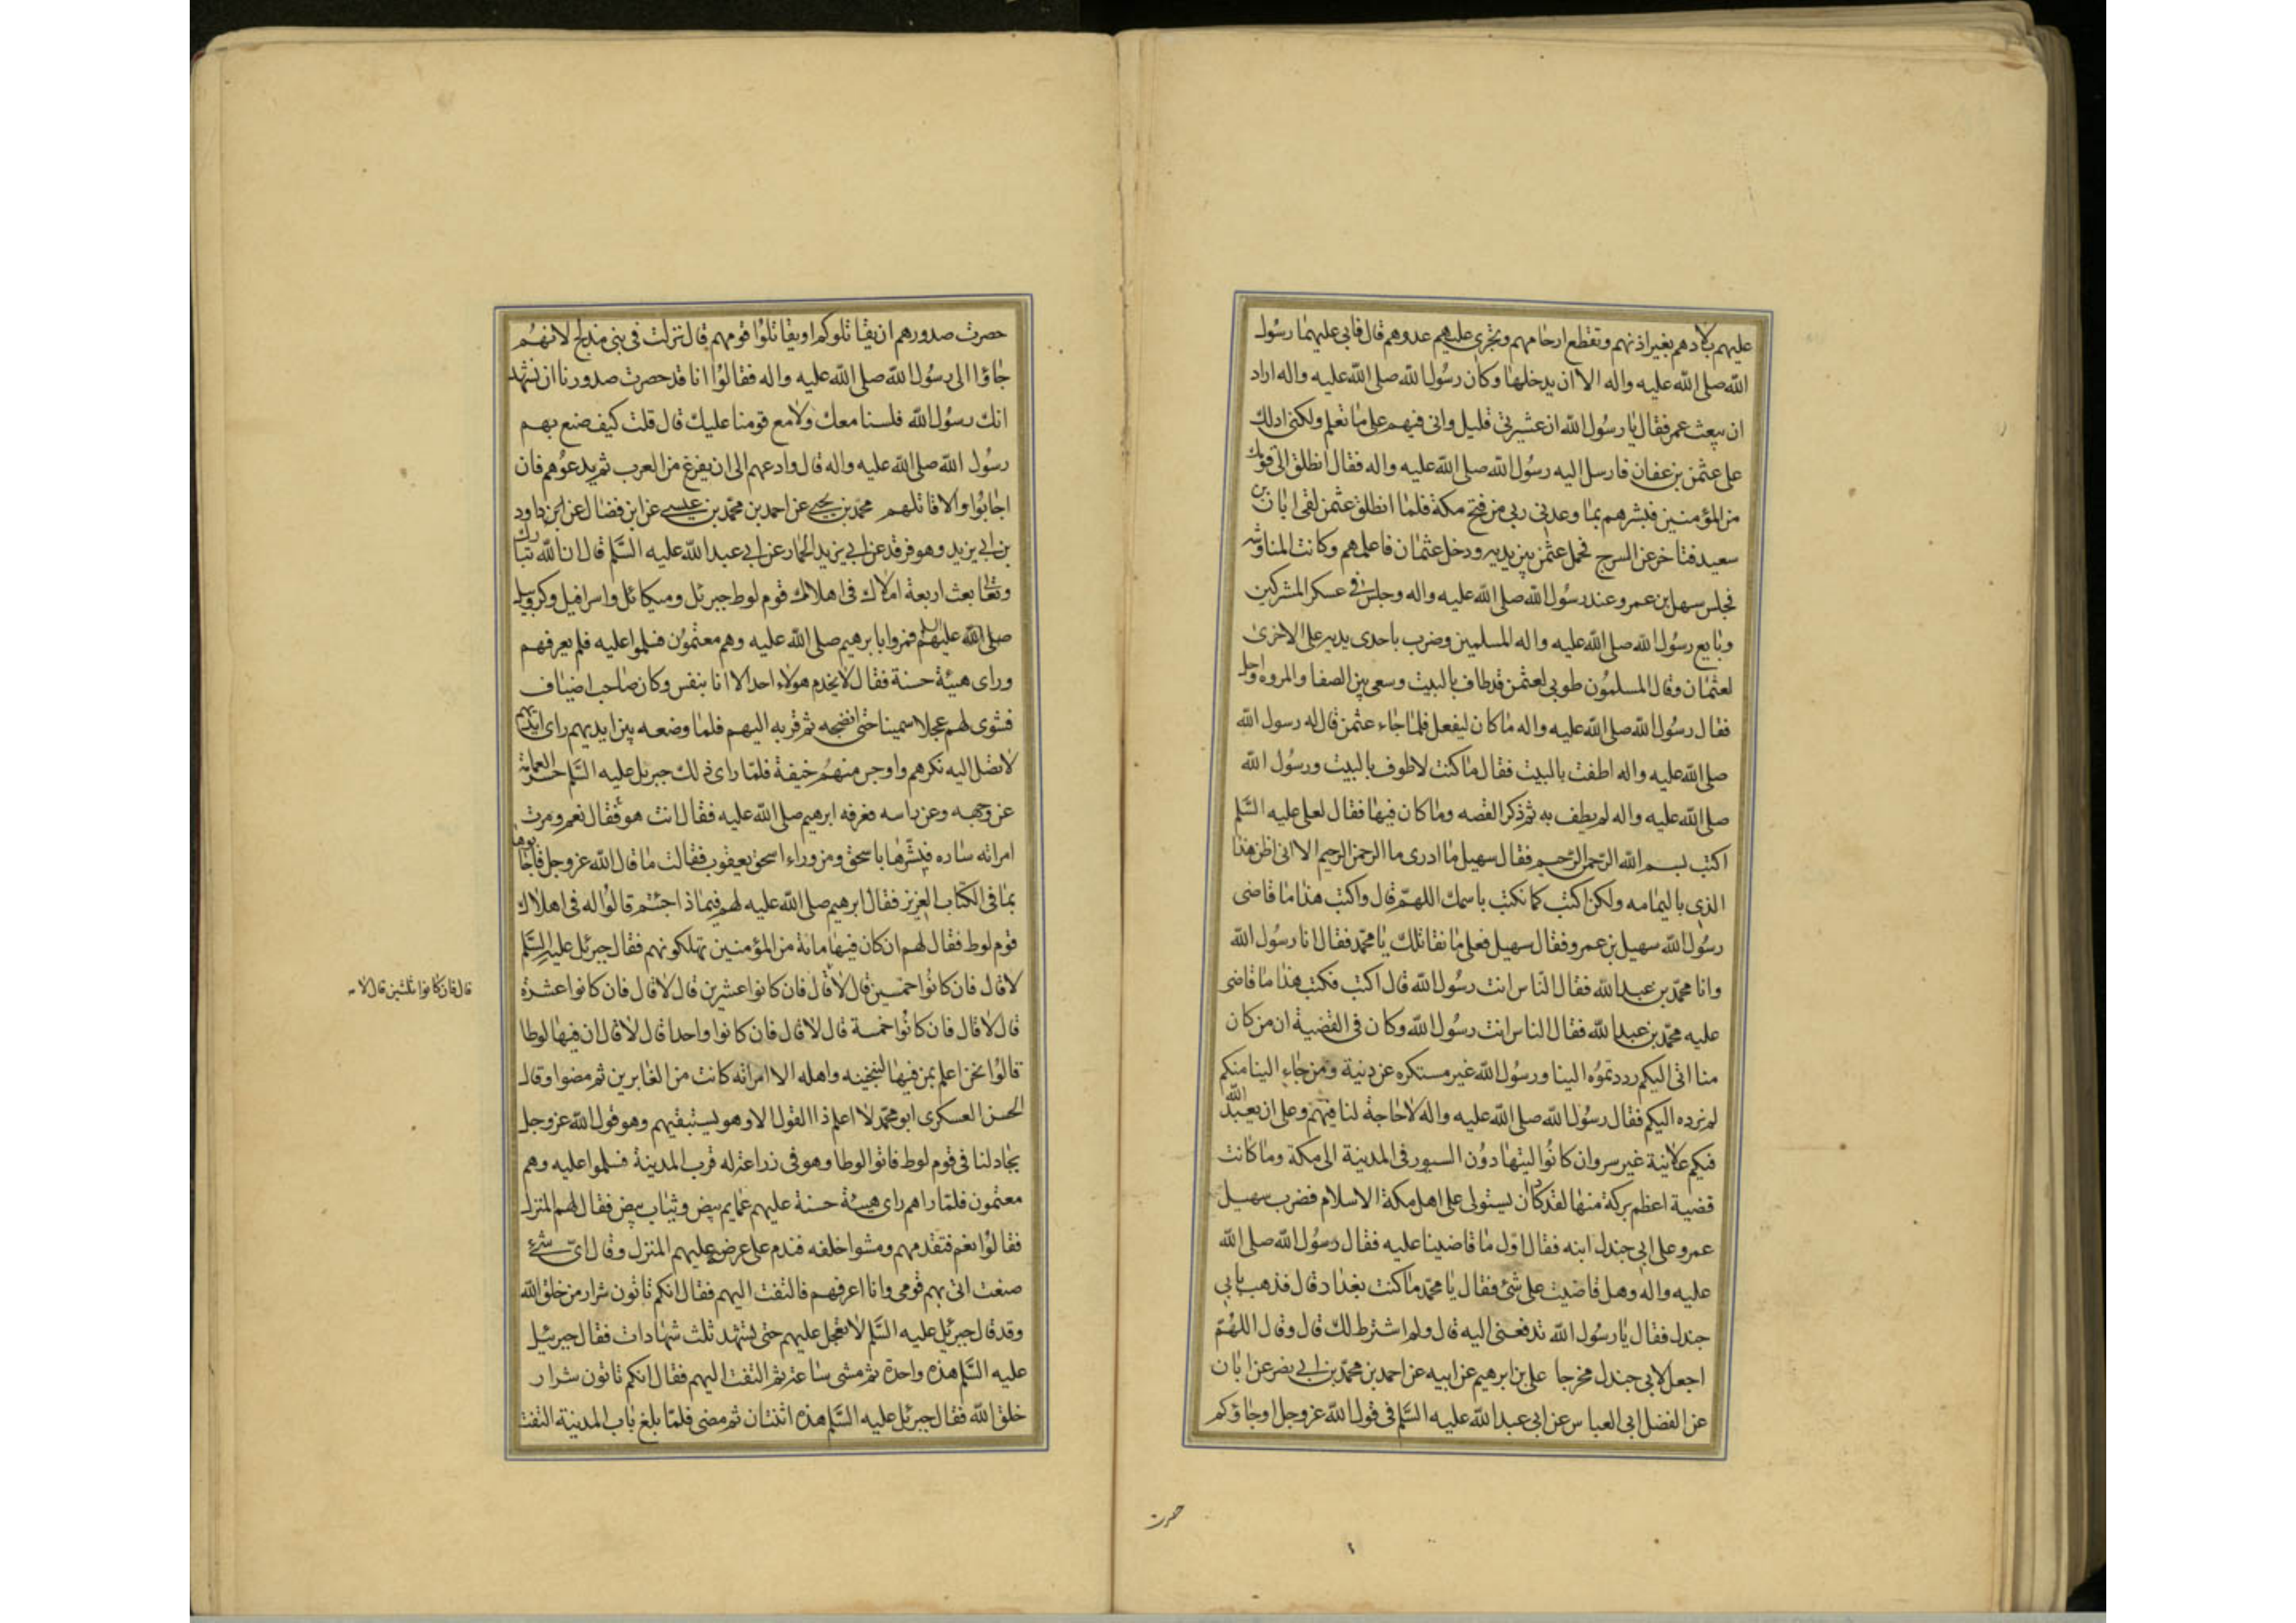 عليهم بلادهم بغير اذنهم وتقطع ارحامهم وتجرى عليهم عدوهم قال فابى عليهما رسول
الله صلى الله عليه واله الا ان يدخلها وكان رسول الله صلى الله عليه واله اراد
ان يبعث عمر فقال يا رسول الله ان عشيرتى قليل وانى فيهم على ما تعلم ولكنى ادلك
على عثمن بن عفان فارسل اليه رسول الله صلى الله عليه واله فقال انطلق الى قومك
من المؤمنين فبشرهم بما وعدنى ربى من فتح مكة فلما انطلق عثمن لقى ابان بن
سعيد فتاخر عن السرج فحمل عثمن بين يديه ودخل عثمان فاعلمهم وكانت المناوشه
فجلس سهل بن عمرو عند رسول الله صلى الله عليه واله وجلس فى عسكر المشركين
وبايع رسول الله صلى الله عليه واله المسلمين وضرب باحدى يديه على الاخرى
لعثمان وقال المسلمون طوبى لعثمن قد طاف بالبيت وسعى بين الصفا والمروه واحل
فقال رسول الله صلى الله عليه واله ما كان ليفعل فلما جاء عثمن قال له رسول الله
صلى الله عليه واله اطفت بالبيت فقال ما كنت لاطوف بالبيت ورسول الله
صلى الله عليه واله لم يطف به ثم ذكر القصه وما كان فيها فقال لعلى عليه السلم
اكتب بسم الله الرحمن الرحيم فقال سهيل ما ادرى ما الرحمن الرحيم الا انى اظن هذا
الذى باليمامه ولكن اكتب كما نكتب باسمك اللهم قال واكتب هذا ما قاضى
رسول الله سهيل بن عمرو فقال سهيل فعلى ما نقاتلك يا محمد فقال انا رسول الله
وانا محمد بن عبد الله فقال الناس انت رسول الله قال اكتب فكتب هذا ما قاضى
عليه محمد بن عبد الله فقال الناس انت رسول الله وكان فى القضية ان من كان
منا اتى اليكم رددتموه الينا ورسول الله غير مستكره عن دنية ومن جاء الينا منكم
لم نرده اليكم فقال رسول الله صلى الله عليه واله لا حاجة لنا فيهم وعلى ان يعبد الله
فيكم علانية غير سر وان كانوا ليتهادون السيور فى المدينة الى مكة وما كانت
قضية اعظم بركة منها لقد كاد ان يستولى على اهل مكة الاسلام فضرب سهيل
عمرو على ابى جندل ابنه فقال اول ما قاضينا عليه فقال رسول الله صلى الله
عليه واله وهل قاضيت على شئ فقال يا محمد ما كنت بغداد قال فذهب بابى
جندل فقال يا رسول الله تدفعنى اليه قال ولم اشترط لك قال وقال اللهم
اجعل لابى جندل مخرجا على بن ابرهيم عن ابيه عن احمد بن محمد بن ابى نصر عن ابان
عن الفضل ابى العباس عن ابى عبد الله عليه السلم فى قول الله عز وجل او جاؤكم
حصرت
حصرت صدورهم ان يقاتلوكم او يقاتلوا قومهم قال نزلت فى بنى مدلج لانهم
جاؤا الى رسول الله صلى الله عليه واله فقالوا انا قد حصرت صدورنا ان نشهد
انك رسول الله فلسنا معك ولا مع قومنا عليك قال قلت كيف صنع بهم
رسول الله صلى الله عليه واله قال وادعهم الى ان يفرغ من العرب ثم يدعوهم فان
اجابوا والا قاتلهم محمد بن يحيى عن احمد بن محمد بن عيسى عن ابن فضال عن ابن داود
بن ابى يزيد وهو فرقد عن ابى يزيد الحمار عن ابى عبد الله عليه السلم قال ان الله تبارك
وتعالى بعث اربعة املاك فى اهلاك قوم لوط جبرئل وميكائل واسرافيل وكروبيل
صلى الله عليهم فمروا بابرهيم صلى الله عليه وهم معتمون فسلموا عليه فلم يعرفهم
وراى هيئة حسنة فقال لا يخدم هولاء احد الا انا بنفسى وكان صاحب اضياف
فشوى لهم عجلا سمينا حتى انضجه ثم قربه اليهم فلما وضعه بين ايديهم راى ايديهم
لا تصل اليه نكرهم واوجس منهم خيفة فلما راى ذلك جبريل عليه السلم حسر العمامة
عن وجهه وعن راسه فعرفه ابرهيم صلى الله عليه فقال انت هو فقال نعم ومرت
امراته ساره فبشرها باسحق ومن وراء اسحق يعقوب فقالت ما قال الله عز وجل فاجابوها
بما فى الكتاب العزيز فقال ابرهيم صلى الله عليه لهم فيما ذا جئتم قالوا له فى اهلاك
قوم لوط فقال لهم ان كان فيها مائة من المؤمنين تهلكونهم فقال جبرئل عليه السلم
لا قال فان كانوا خمسين قال لا قال فان كانوا عشرين قال لا قال فان كانوا عشرة
قال فان كانوا ثلثين قال لا
قال لا قال فان كانوا خمسة قال لا قال فان كانوا واحدا قال لا قال ان فيها لوطا
قالوا نحن اعلم بمن فيها لننجينه واهله الا امراته كانت من الغابرين ثم مضوا وقال
الحسن العسكرى ابو محمد لا اعلم ذا القول الا وهو يستبقيهم وهو قول الله عز وجل
يجادلنا فى قوم لوط فاتوا لوطا وهو فى زراعة له قرب المدينة فسلموا عليه وهم
معتمون فلما راهم راى هيئة حسنة عليهم عمايم بيض وثياب بيض فقال لهم المنزل
فقالوا نعم فتقدمهم ومشوا خلفه فندم على عرض عليهم المنزل وقال اى شئ
صنعت اتى بهم قومى وانا اعرفهم فالتفت اليهم فقال انكم تاتون شرار من خلق الله
وقد قال جبرئيل عليه السلم لا نعجل عليهم حتى يشهد ثلث شهادات فقال جبرئيل
عليه السلم هذه واحدة ثم مشى ساعة ثم التفت اليهم فقال انكم تاتون شرار
خلق الله فقال جبرئل عليه السلم هذه اثنتان ثم مضى فلما بلغ باب المدينة التفت